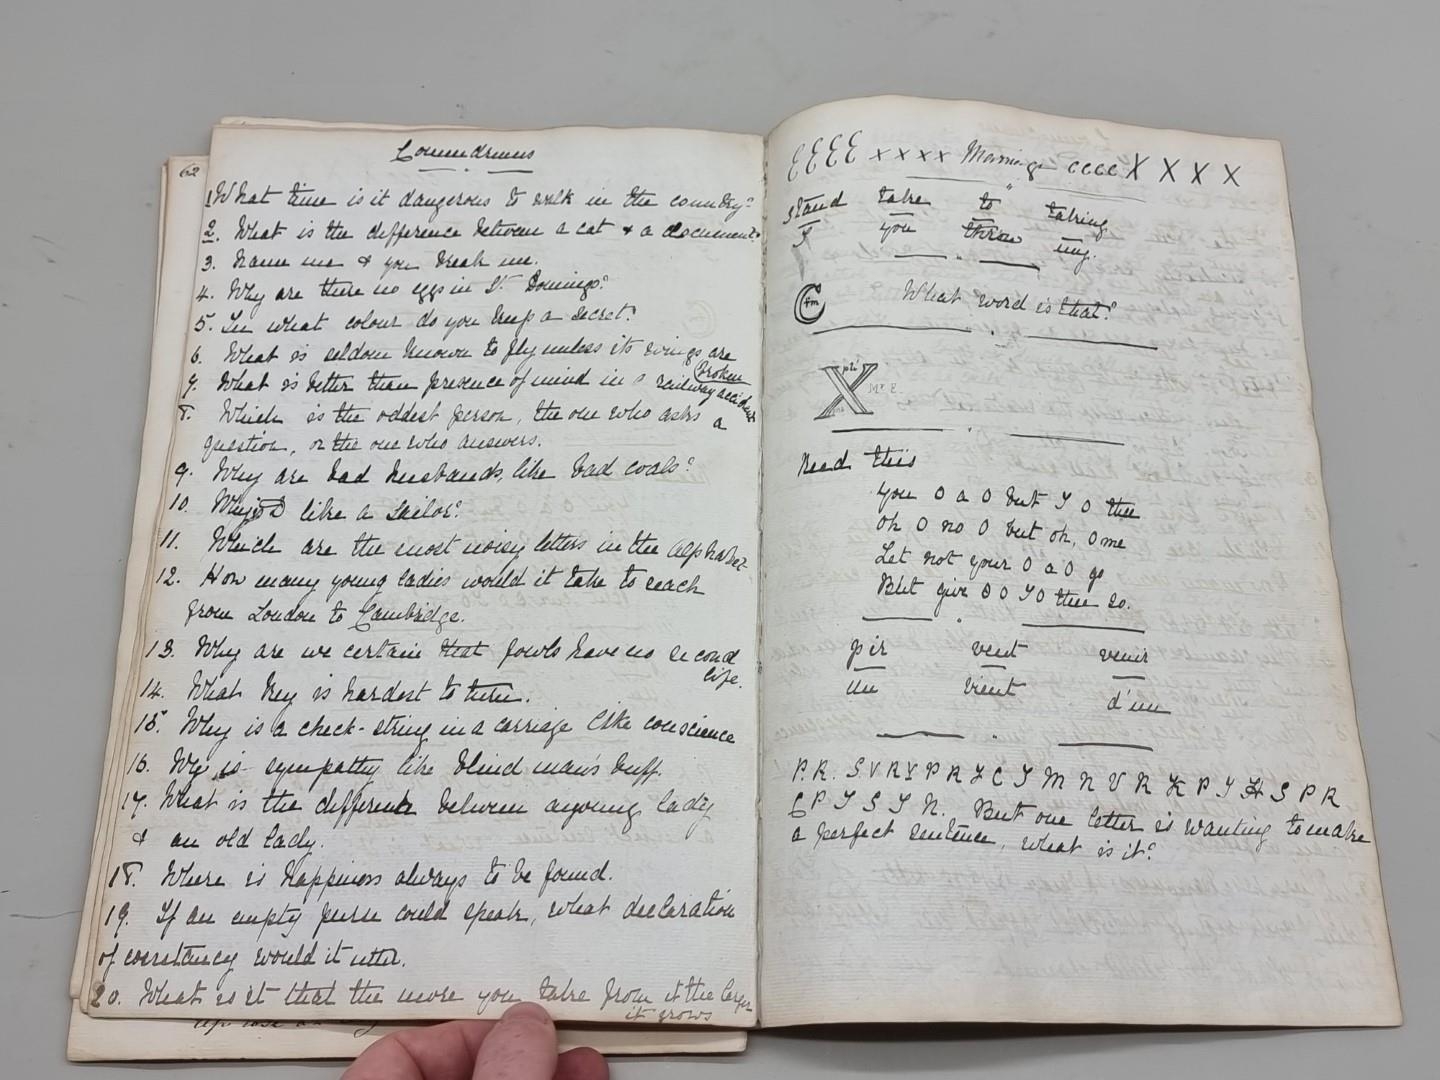 62
Conundrums
1. What time is it dangerous to walk in the country?
2. What is the difference between a cat & a document?
3. Name me & you break me.
4. Why are there no eggs in St. Domingo?
5. In what colour do you keep a secret?
6. What is seldom known to fly unless its wings are
broken
7. What is better than presence of mind in a railway accident
8. Which is the oddest person, the one who asks a
question, or the one who answers.
9. Why are bad husbands, like bad coals?
10. Why is D like a Sailor?
11. Which are the most noisy letters in the alphabet
12. How many young ladies would it take to reach
from London to Cambridge.
13. Why are we certain that fowls have no second
life.
14. What key is hardest to turn.
15. Why is a check-string in a carriage like conscience
16. Wy is sympathy like blind man's buff.
17. What is the difference between a young lady
& an old lady.
18. Where is happiness always to be found.
19. If an empty purse could speak, what declaration
of constancy would it utter.
20. What is it that the more you take from it the larger
it grows
x x x x cccc X X X X
stand take to taking
I you throw my.
C fm What word is that?
X
Read this
You 0 a 0 but I 0 thee
Oh 0 no 0 but oh, 0 me
Let not your 0 a 0 go
But give 0 0 I 0 thee so.
pir vent venir
un vient d'un
P. R. S V R Y P R F C T M N V R K P T H S P R
C P T S T N. But one letter is wanting to make
a perfect sentence, what is it?